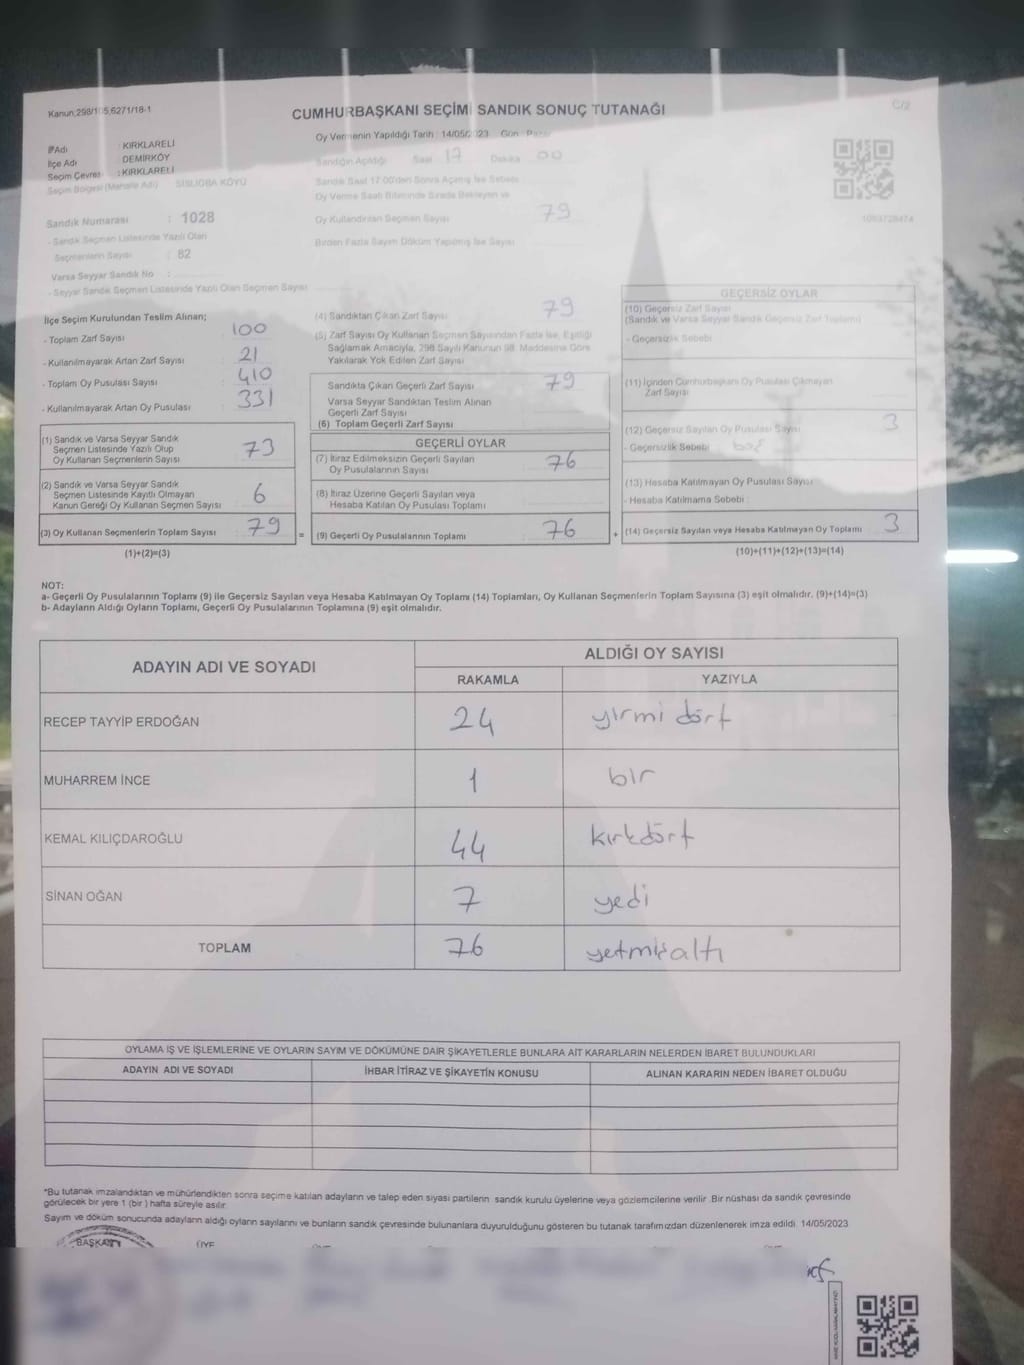 Kanun;298/105,6271/18-1
C/2
CUMHURBAŞKANI SEÇİMİ SANDIK SONUÇ TUTANAĞI
Oy Vermenin Yapıldığı Tarih : 14/05/2023 Gün : Pazar
İl Adı : KIRKLARELİ
İlçe Adı : DEMİRKÖY
Seçim Çevresi : KIRKLARELİ
Seçim Bölgesi (Mahalle Adı) SİSLİOBA KÖYÜ
Sandığın Açıldığı Saat 17 Dakika 00
Sandık Saat 17:00'den Sonra Açılmış İse Sebebi
Oy Verme Saati Bitiminde Sırada Bekleyen ve
Oy Kullandırılan Seçmen Sayısı 79
Birden Fazla Sayım Döküm Yapılmış İse Sayısı
1093728474
Sandık Numarası : 1028
- Sandık Seçmen Listesinde Yazılı Olan
Seçmenlerin Sayısı : 82
Varsa Seyyar Sandık No :
- Seyyar Sandık Seçmen Listesinde Yazılı Olan Seçmen Sayısı
İlçe Seçim Kurulundan Teslim Alınan;
- Toplam Zarf Sayısı : 100
- Kullanılmayarak Artan Zarf Sayısı : 21
- Toplam Oy Pusulası Sayısı : 410
- Kullanılmayarak Artan Oy Pusulası : 331
(1) Sandık ve Varsa Seyyar Sandık
Seçmen Listesinde Yazılı Olup
Oy Kullanan Seçmenlerin Sayısı 73
(2) Sandık ve Varsa Seyyar Sandık
Seçmen Listesinde Kayıtlı Olmayan
Kanun Gereği Oy Kullanan Seçmen Sayısı 6
(3) Oy Kullanan Seçmenlerin Toplam Sayısı 79
(1)+(2)=(3)
(4) Sandıktan Çıkan Zarf Sayısı 79
(5) Zarf Sayısı Oy Kullanan Seçmen Sayısından Fazla İse, Eşitliği
Sağlamak Amacıyla, 298 Sayılı Kanunun 98. Maddesine Göre
Yakılarak Yok Edilen Zarf Sayısı
Sandıkta Çıkan Geçerli Zarf Sayısı 79
Varsa Seyyar Sandıktan Teslim Alınan
Geçerli Zarf Sayısı
(6) Toplam Geçerli Zarf Sayısı
GEÇERLİ OYLAR
(7) İtiraz Edilmeksizin Geçerli Sayılan
Oy Pusulalarının Sayısı 76
(8) İtiraz Üzerine Geçerli Sayılan veya
Hesaba Katılan Oy Pusulası Toplamı
= (9) Geçerli Oy Pusulalarının Toplamı 76 +
GEÇERSİZ OYLAR
(10) Geçersiz Zarf Sayısı
(Sandık ve Varsa Seyyar Sandık Geçersiz Zarf Toplamı)
- Geçersizlik Sebebi :
(11) İçinden Cumhurbaşkanı Oy Pusulası Çıkmayan
Zarf Sayısı
(12) Geçersiz Sayılan Oy Pusulası Sayısı 3
- Geçersizlik Sebebi :
(13) Hesaba Katılmayan Oy Pusulası Sayısı
- Hesaba Katılmama Sebebi :
(14) Geçersiz Sayılan veya Hesaba Katılmayan Oy Toplamı 3
(10)+(11)+(12)+(13)=(14)
NOT:
a- Geçerli Oy Pusulalarının Toplamı (9) ile Geçersiz Sayılan veya Hesaba Katılmayan Oy Toplamı (14) Toplamları, Oy Kullanan Seçmenlerin Toplam Sayısına (3) eşit olmalıdır. (9)+(14)=(3)
b- Adayların Aldığı Oyların Toplamı, Geçerli Oy Pusulalarının Toplamına (9) eşit olmalıdır.
ADAYIN ADI VE SOYADI
ALDIĞI OY SAYISI
RAKAMLA YAZIYLA
RECEP TAYYİP ERDOĞAN 24 yirmi dört
MUHARREM İNCE 1 bir
KEMAL KILIÇDAROĞLU 44 kırkdört
SİNAN OĞAN 7 yedi
TOPLAM 76 yetmişaltı
OYLAMA İŞ VE İŞLEMLERİNE VE OYLARIN SAYIM VE DÖKÜMÜNE DAİR ŞİKAYETLERLE BUNLARA AİT KARARLARIN NELERDEN İBARET BULUNDUKLARI
ADAYIN ADI VE SOYADI İHBAR İTİRAZ VE ŞİKAYETİN KONUSU ALINAN KARARIN NEDEN İBARET OLDUĞU
*Bu tutanak imzalandıktan ve mühürlendikten sonra seçime katılan adayların ve talep eden siyasi partilerin sandık kurulu üyelerine veya gözlemcilerine verilir .Bir nüshası da sandık çevresinde
görülecek bir yere 1 (bir ) hafta süreyle asılır.
Sayım ve döküm sonucunda adayların aldığı oyların sayılarını ve bunların sandık çevresinde bulunanlara duyurulduğunu gösteren bu tutanak tarafımızdan düzenlenerek imza edildi. 14/05/2023
BAŞKAN ÜYE